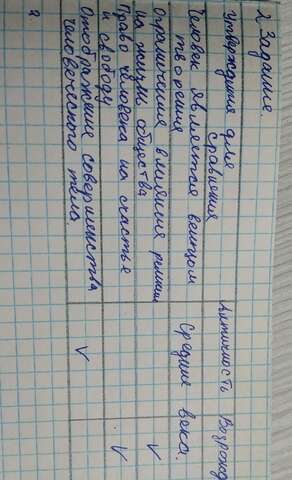 2 Задание.
Утверждения для сравнения
Античность
Средние века.
Возрожд
Человек является венцом
творения
Ограничения влияния религии
на жизнь общества
V
Право человека на счастье
и свободу
V
Отображение совершенства
человеческого тела.
V